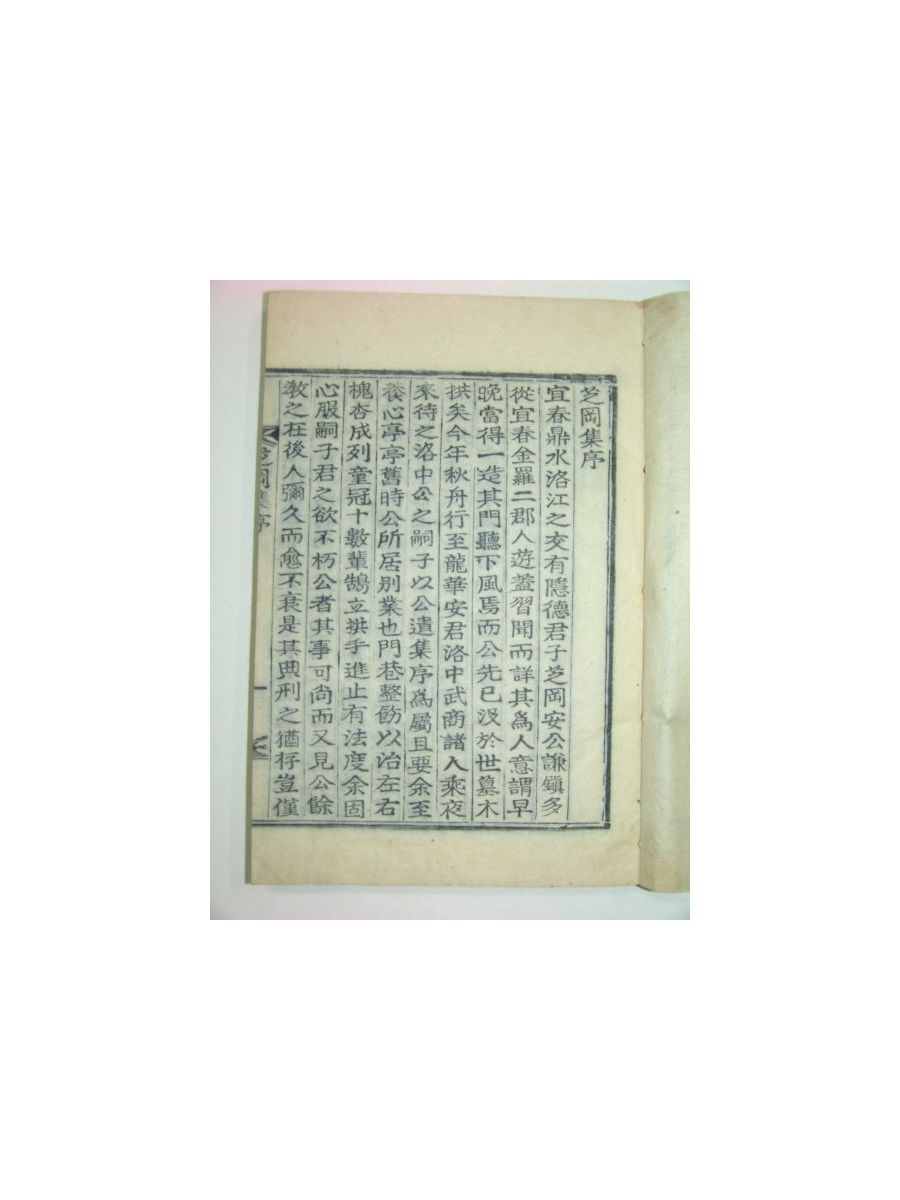 芝岡集序
宜春鼎水洛江之交有隱德君子芝岡安公謙鎭多
從宜春金羅二郡人遊蓋習聞而詳其爲人意謂早
晩當得一造其門聽下風焉而公先已沒於世墓木
拱矣今年秋舟行至龍華安君洛中武商諸人乘夜
來待之洛中公之嗣子以公遺集序爲屬且要余至
養心亭亭舊時公所居別業也門巷整飭以治左右
槐杏成列童冠十數輩鵠立拱手進止有法度余固
心服嗣子君之欲不朽公者其事可尙而又見公餘
敎之在後人彌久而愈不衰是其典刑之猶存豈僅
芝岡集序
一